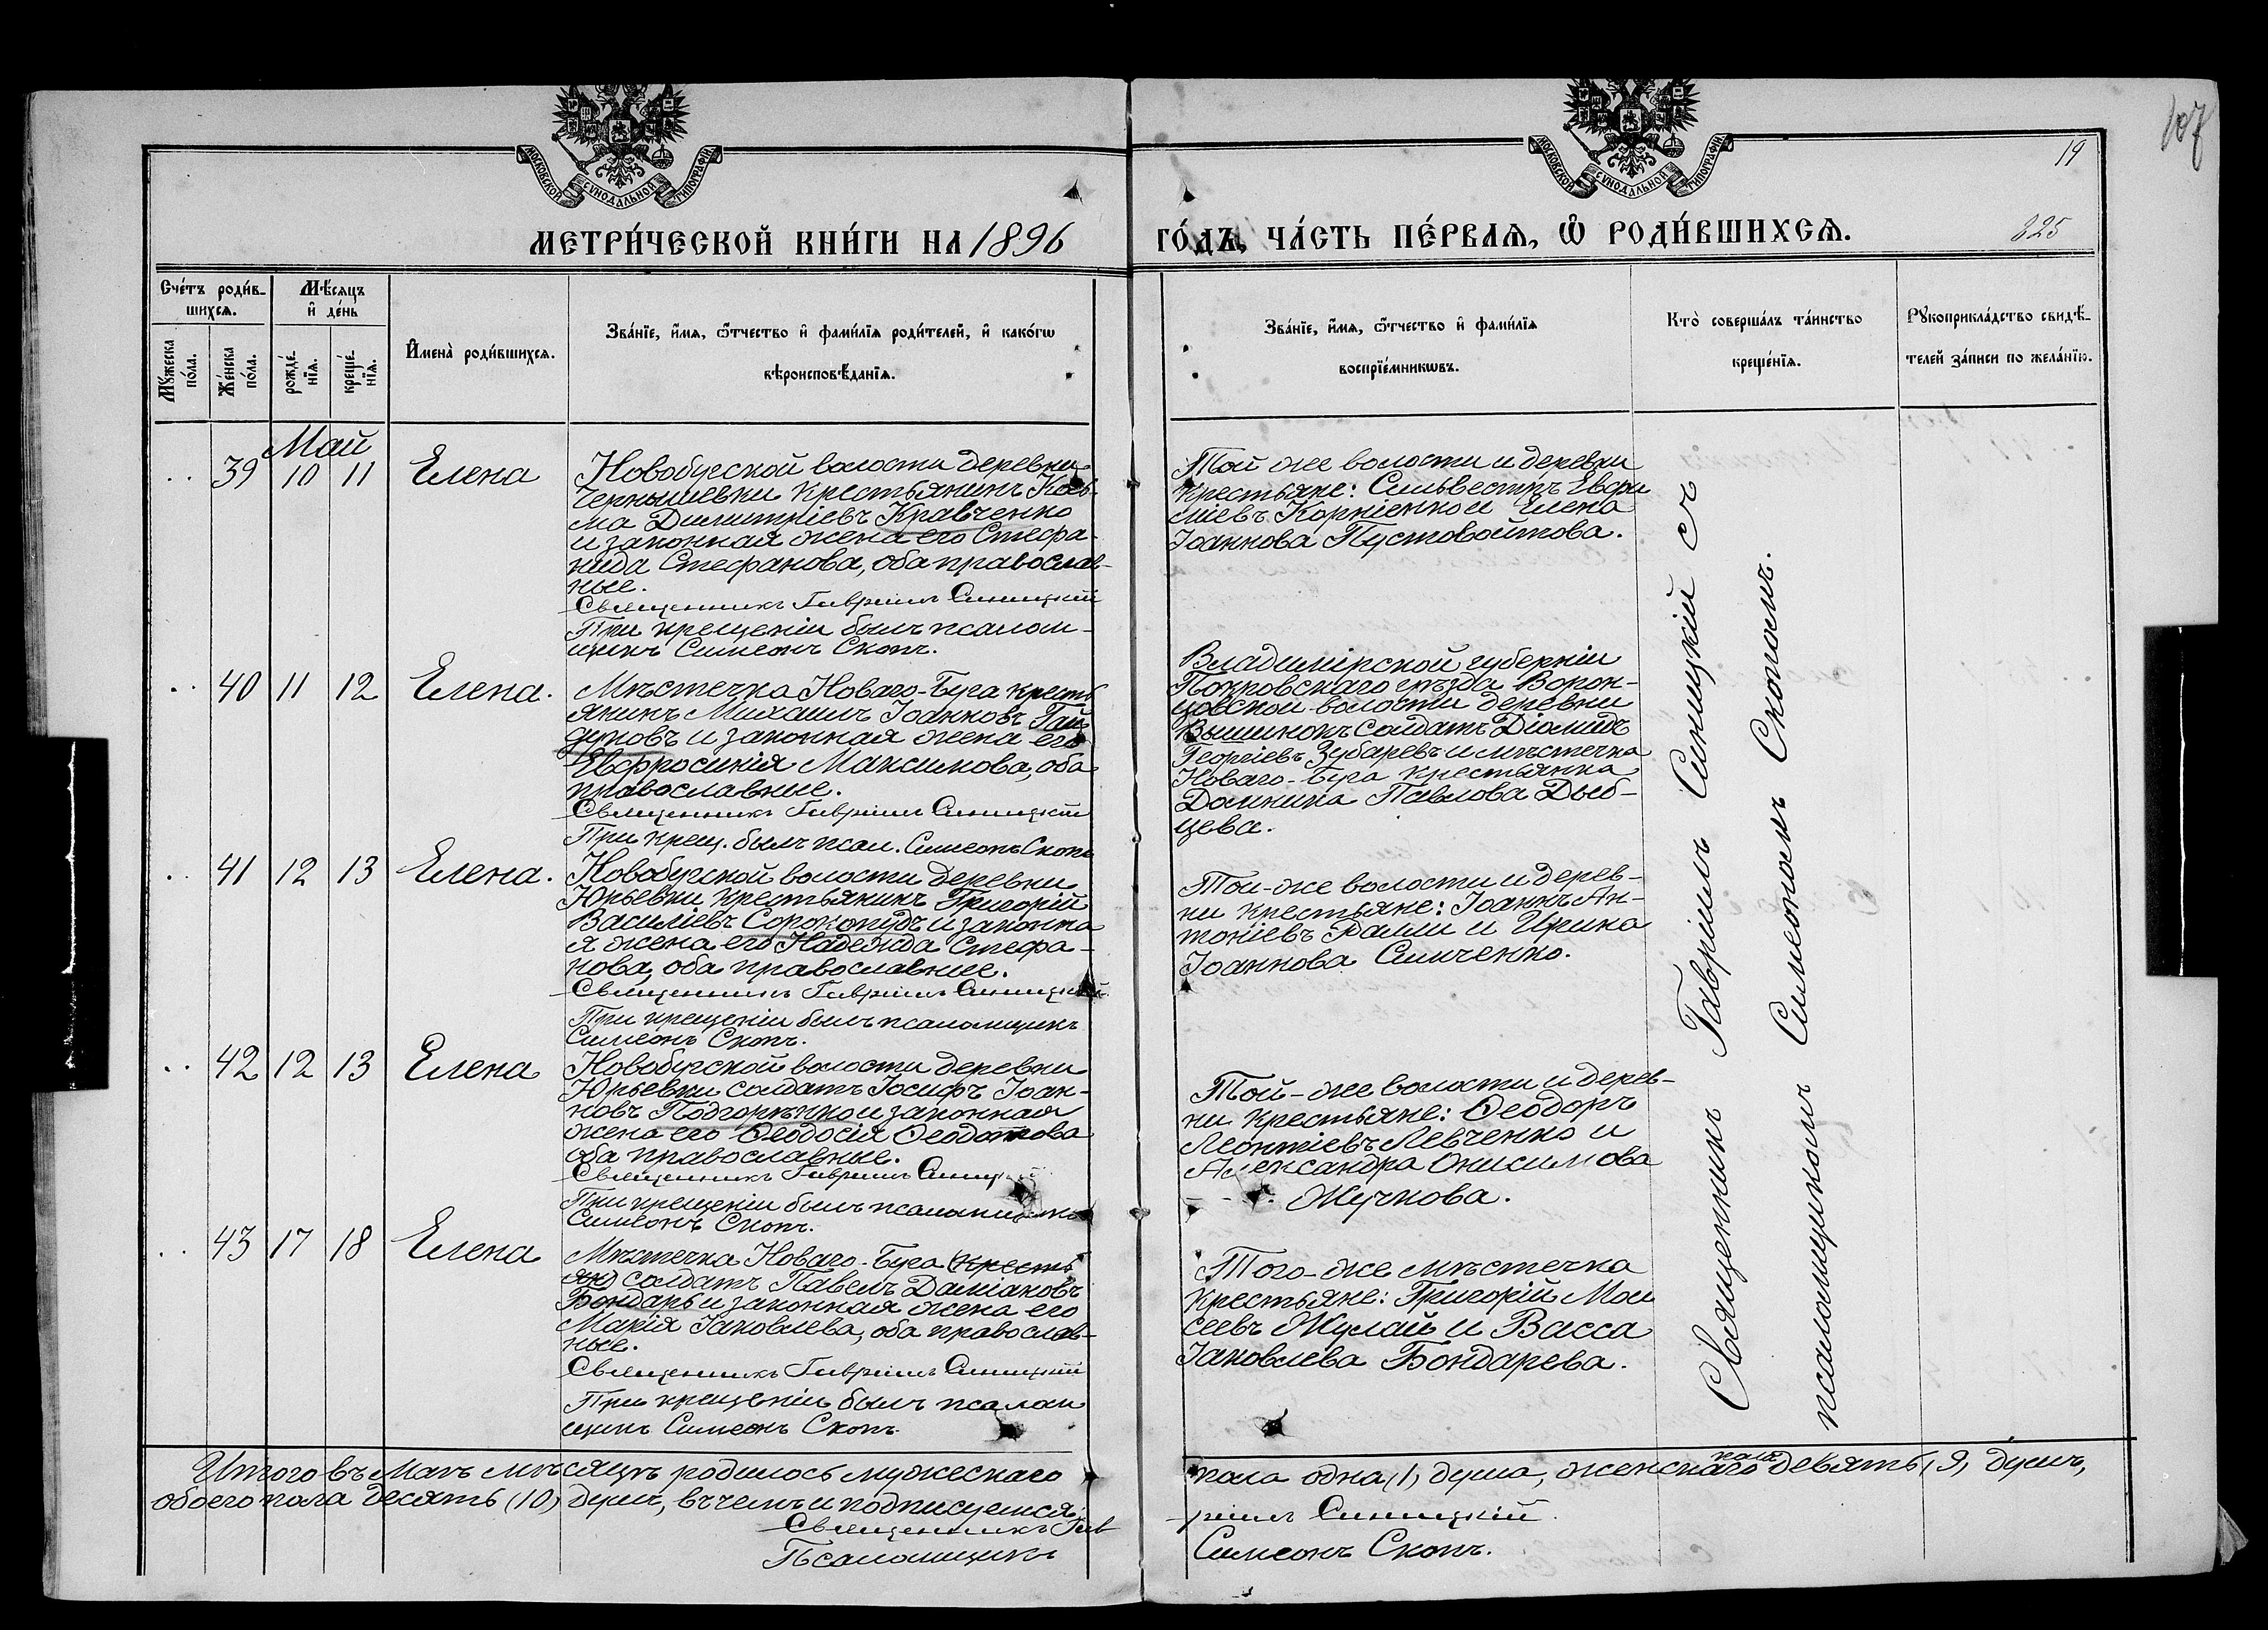 107
19
825
МОСКОВСКОЙ СУНОДАЛЬНОЙ ТИПОГРАФІИ
МОСКОВСКОЙ СУНОДАЛЬНОЙ ТИПОГРАФІИ
МЕТРИ́ЧЕСКОЙ КНИ́ГИ НА 1896 ГО́ДЪ, ЧА́СТЬ ПЕ́РВАѦ, Ѡ҆ РОДИ́ВШИХСѦ.
Сче́тъ роди́в-
шихсѧ.
Мꙋ́жеска по́ла.
Же́нска по́ла.
Мѣ́сѧцъ
и҆ де́нь
рожде́-
нїѧ.
креще́-
нїѧ.
И҆мена̀ роди́вшихсѧ.
Зва́нїе, и҆́мѧ, ѻ҆́тчество и҆ фами́лїѧ роди́телей, и҆ како́гѡ
вѣроисповѣ́данїѧ.
Зва́нїе, и҆́мѧ, ѻ҆́тчество и҆ фами́лїѧ
воспрїе́мникѡвъ.
Кто̀ соверша́лъ та́инство
креще́нїѧ.
Рꙋкоприкла́дство свидѣ́-
телей за́писи по жела́нїю.
Май
39 10 11 Елена
Новобугской волости деревни
Чернышевки крестьянинъ Кось-
ма Димитріевъ Кравченко
и законная жена его Стефа-
нида Стефанова, оба православ-
ные.
Священникъ Гавріилъ Синицкій
При крещеніи былъ псалом-
щикъ Симеонъ Скопъ.
Той же волости и деревни
крестьяне: Сильвестръ Евфи
міевъ Корніенко и Елена
Іоаннова Пустовойтова.
40 11 12 Елена.
Мѣстечка Новаго-Буга кресть
янинъ Михаилъ Іоанновъ Гай
дуковъ и законная жена его
Евфросинія Максимова, оба
православные.
Священникъ Гавріилъ Синицкій
При крещ. былъ псал. Симеонъ Скопъ
Владимірской губерніи
Покровскаго уѣзда Ворон-
цовской волости деревни
Вышинокъ солдатъ Діомидъ
Георгіевъ Зубаревъ и мѣстечка
Новаго-Буга крестьянка
Домника Павлова Дыб-
цева.
41 12 13 Елена.
Новобугской волости деревни
Юрьевки крестьянинъ Григорій
Василіевъ Сорокопудъ и законна
я жена его Надежда Стефа-
нова, оба православные.
Священникъ Гавріилъ Синицкій.
При крещеніи былъ псаломщикъ
Симеонъ Скопъ.
Той-же волости и дерев-
ни крестьяне: Іоаннъ Ан-
тоніевъ Ралли и Ирина
Іоаннова Симченко.
42 12 13 Елена
Новобугской волости деревни
Юрьевки солдатъ Іосифъ Іоан-
новъ Подгорнько и законная
жена его Ѳеодосія Ѳеодотова
оба православные.
Священникъ Гавріилъ Синицкій
При крещеніи былъ псаломщикъ
Симеонъ Скопъ.
Той-же волости и дерев-
ни крестьяне: Ѳеодоръ
Леонтіевъ Левченко и
Александра Онисимова
Жучкова.
43 17 18 Елена
Мѣстечка Новаго-Буга (кресть
ян) солдатъ Павелъ Даміановъ
Бондарь и законная жена его
Марія Іаковлева, оба православ-
ные.
Священникъ Гавріилъ Синицкій
При крещеніи былъ псалом
щикъ Симеонъ Скопъ.
Того-же мѣстечка
крестьяне: Григорій Мои
сеевъ Жулай и Васса
Іаковлева Бондарева.
Священникъ Гавріилъ Синицкій съ
псаломщикомъ Симеономъ Скопомъ.
Итого въ Маѣ мѣсяцѣ родилось мужескаго пола одна (1) душа, женскаго пола девять (9) душъ,
обоего пола десять (10) душъ, въ чемъ и подписуемся:
Священникъ Гавріилъ Синицкій.
Псаломщикъ Симеонъ Скопъ.